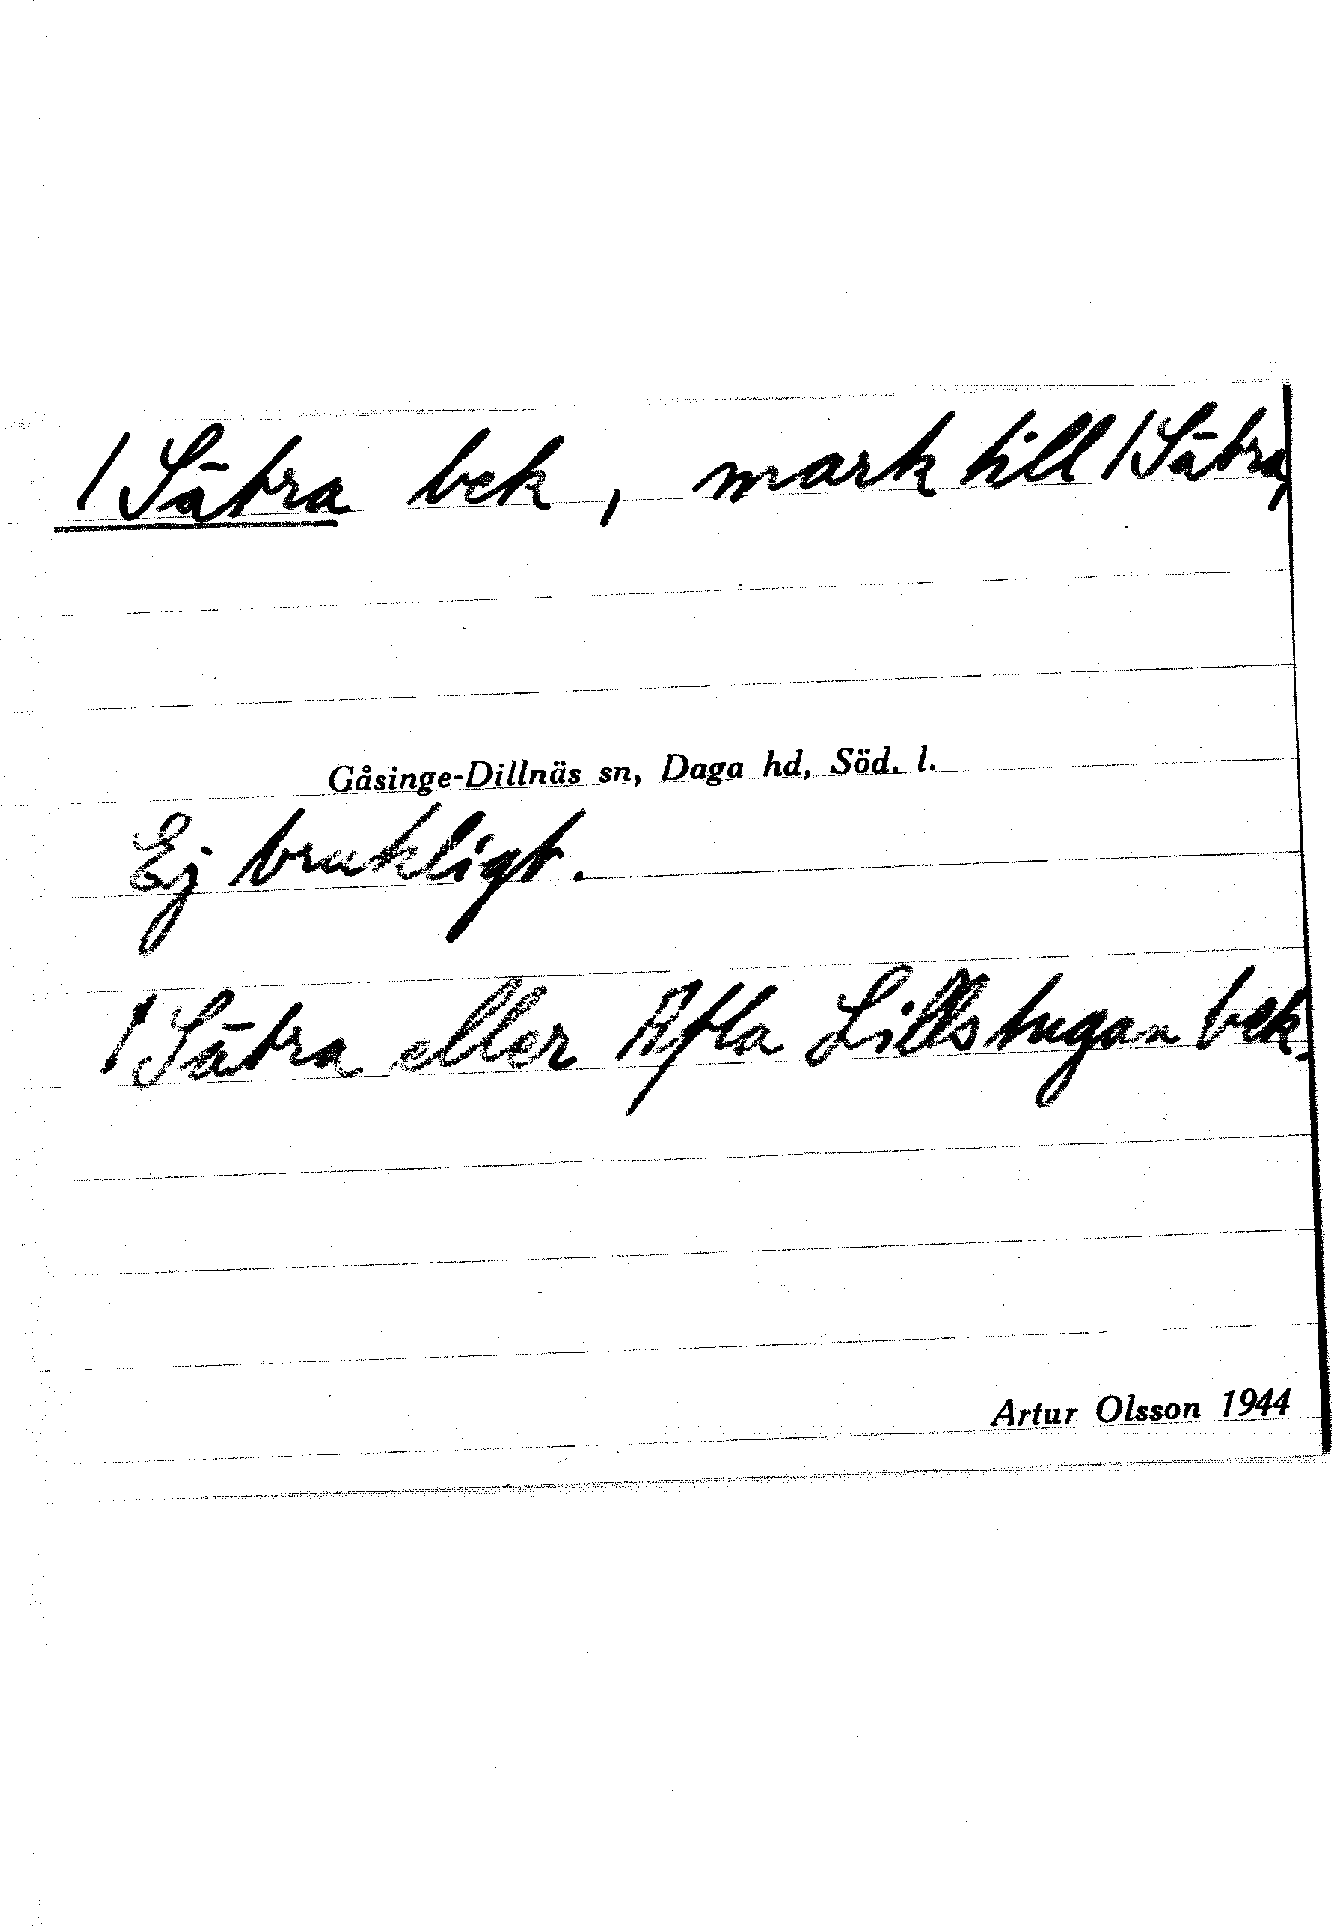 / Sätra bek, mark till / Sätra,
Gåsinge-Dillnäs sn, Daga hd, Söd. l.
Ej brukligt.
/ Sätra eller Lillstugan bek.
Artur Olsson 1944